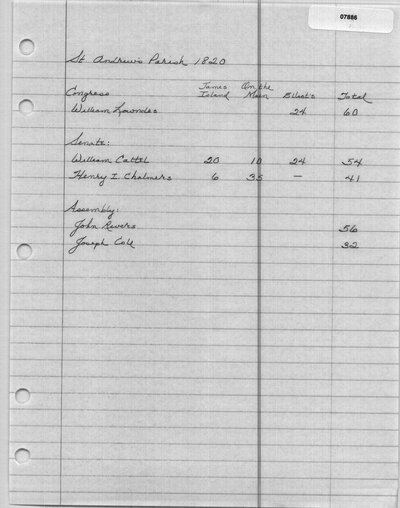 07886
St. Andrew's Parish 1820
James On the
Congress Island Main Elliott's Total
William Lowndes 24 60
Senate:
William Cattel 20 10 24 54
Henry I. Chalmers 6 35 — 41
Assembly:
John Rivers 56
Joseph Cole 32